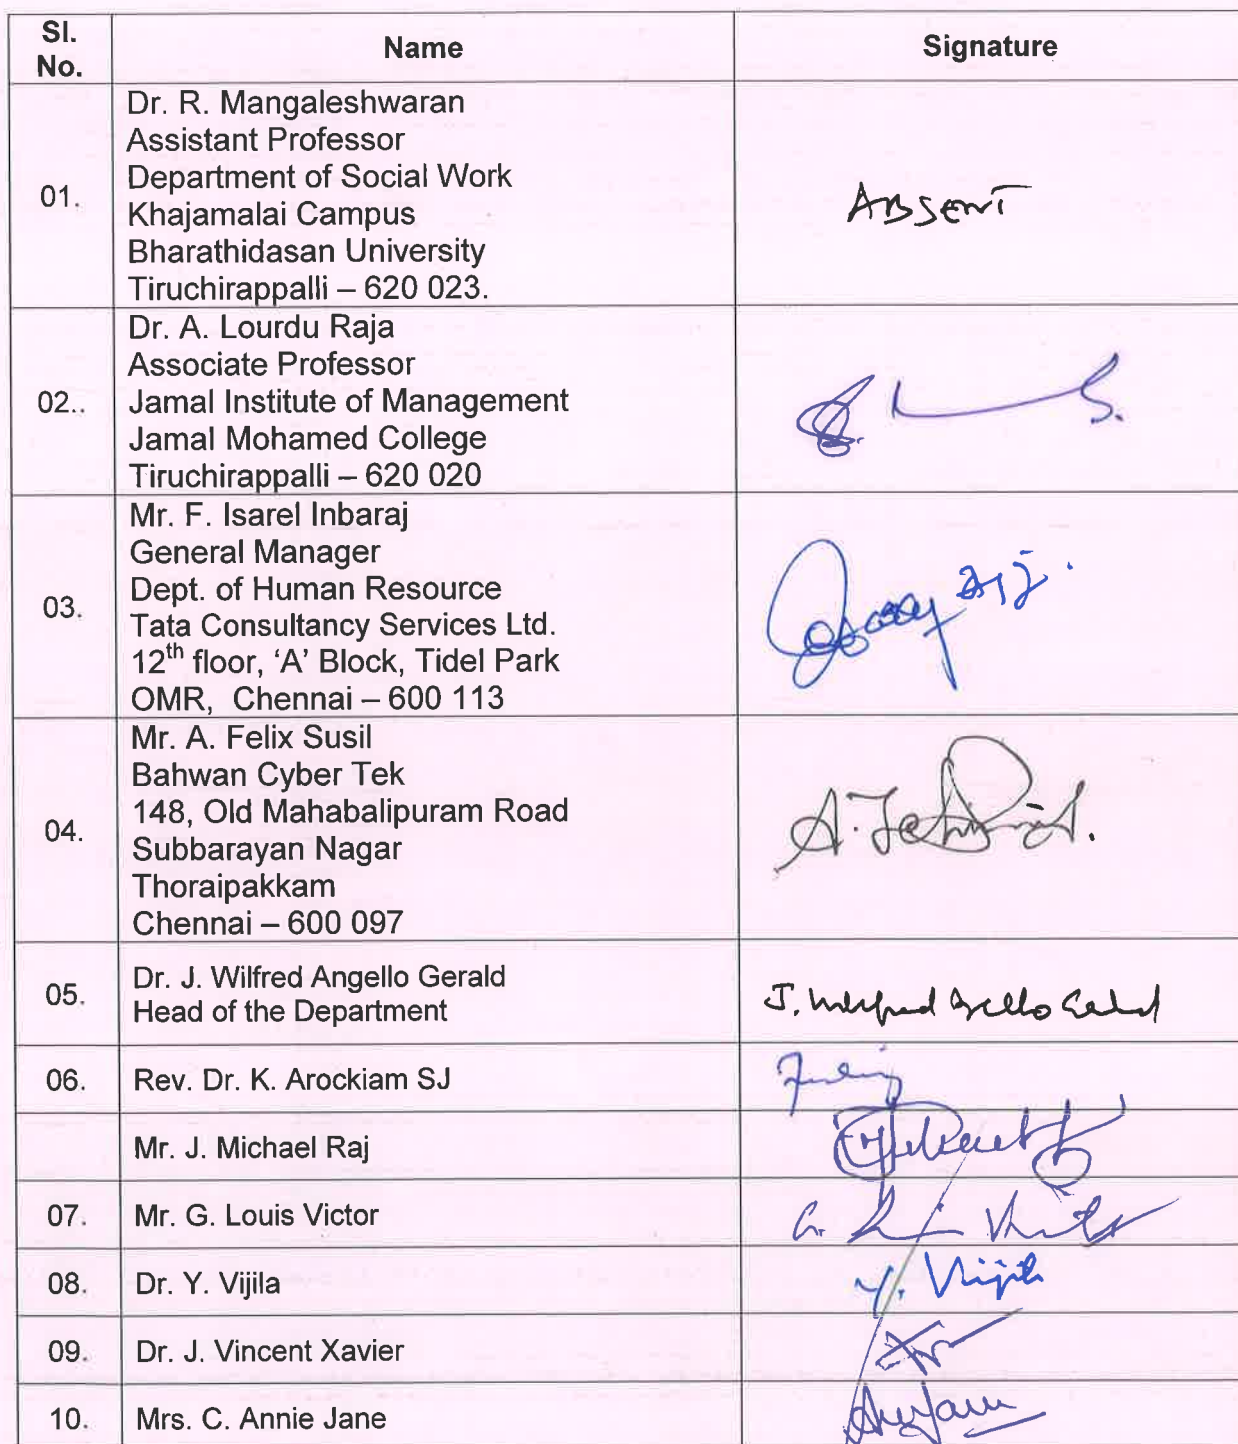 Sl. No. Name Signature
01. Dr. R. Mangaleshwaran
Assistant Professor
Department of Social Work
Khajamalai Campus
Bharathidasan University
Tiruchirappalli – 620 023.
ABSENT
02.. Dr. A. Lourdu Raja
Associate Professor
Jamal Institute of Management
Jamal Mohamed College
Tiruchirappalli – 620 020
03. Mr. F. Isarel Inbaraj
General Manager
Dept. of Human Resource
Tata Consultancy Services Ltd.
12th floor, ‘A’ Block, Tidel Park
OMR, Chennai – 600 113
04. Mr. A. Felix Susil
Bahwan Cyber Tek
148, Old Mahabalipuram Road
Subbarayan Nagar
Thoraipakkam
Chennai – 600 097
05. Dr. J. Wilfred Angello Gerald
Head of the Department
06. Rev. Dr. K. Arockiam SJ
Mr. J. Michael Raj
07. Mr. G. Louis Victor
08. Dr. Y. Vijila
09. Dr. J. Vincent Xavier
10. Mrs. C. Annie Jane